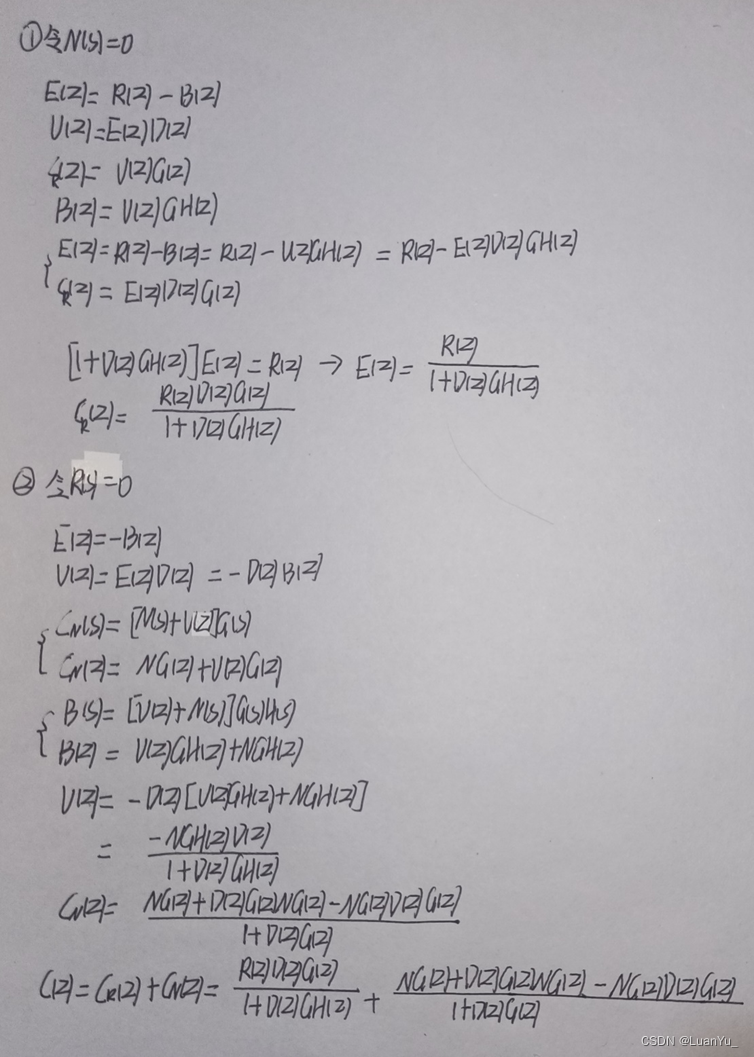 ①令N(s)=0
E(z)= R(z) - B(z)
U(z)=E(z)D(z)
C_R(z)= U(z)G(z)
B(z)= U(z)GH(z)
E(z)= R(z)-B(z)= R(z) - U(z)GH(z) = R(z)- E(z)D(z)GH(z)
C_R(z) = E(z)D(z)G(z)
[1+D(z)GH(z)]E(z)=R(z) → E(z)= R(z) / 1+D(z)GH(z)
C_R(z)= R(z)D(z)G(z) / 1+D(z)GH(z)
② 令R(s)=0
E(z)=-B(z)
U(z)= E(z)D(z) = - D(z)B(z)
C_N(s)= [N(s)+U(z)]G(s)
C_N(z)= NG(z)+U(z)G(z)
B(s)= [U(z)+N(s)]G(s)H(s)
B(z)= U(z)GH(z)+NGH(z)
U(z)= -D(z)[U(z)GH(z)+NGH(z)]
= -NGH(z)D(z) / 1+D(z)GH(z)
C_N(z)= NG(z)+D(z)G(z)NG(z)-NG(z)D(z)G(z) / 1+D(z)G(z)
C(z)=C_R(z)+C_N(z)= R(z)D(z)G(z) / 1+D(z)GH(z) + NG(z)+D(z)G(z)NG(z) - NG(z)D(z)G(z) / 1+D(z)G(z)
CSDN @LuanYu_